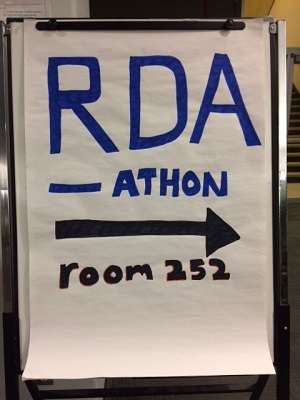 RDA
— ATHON
room 252